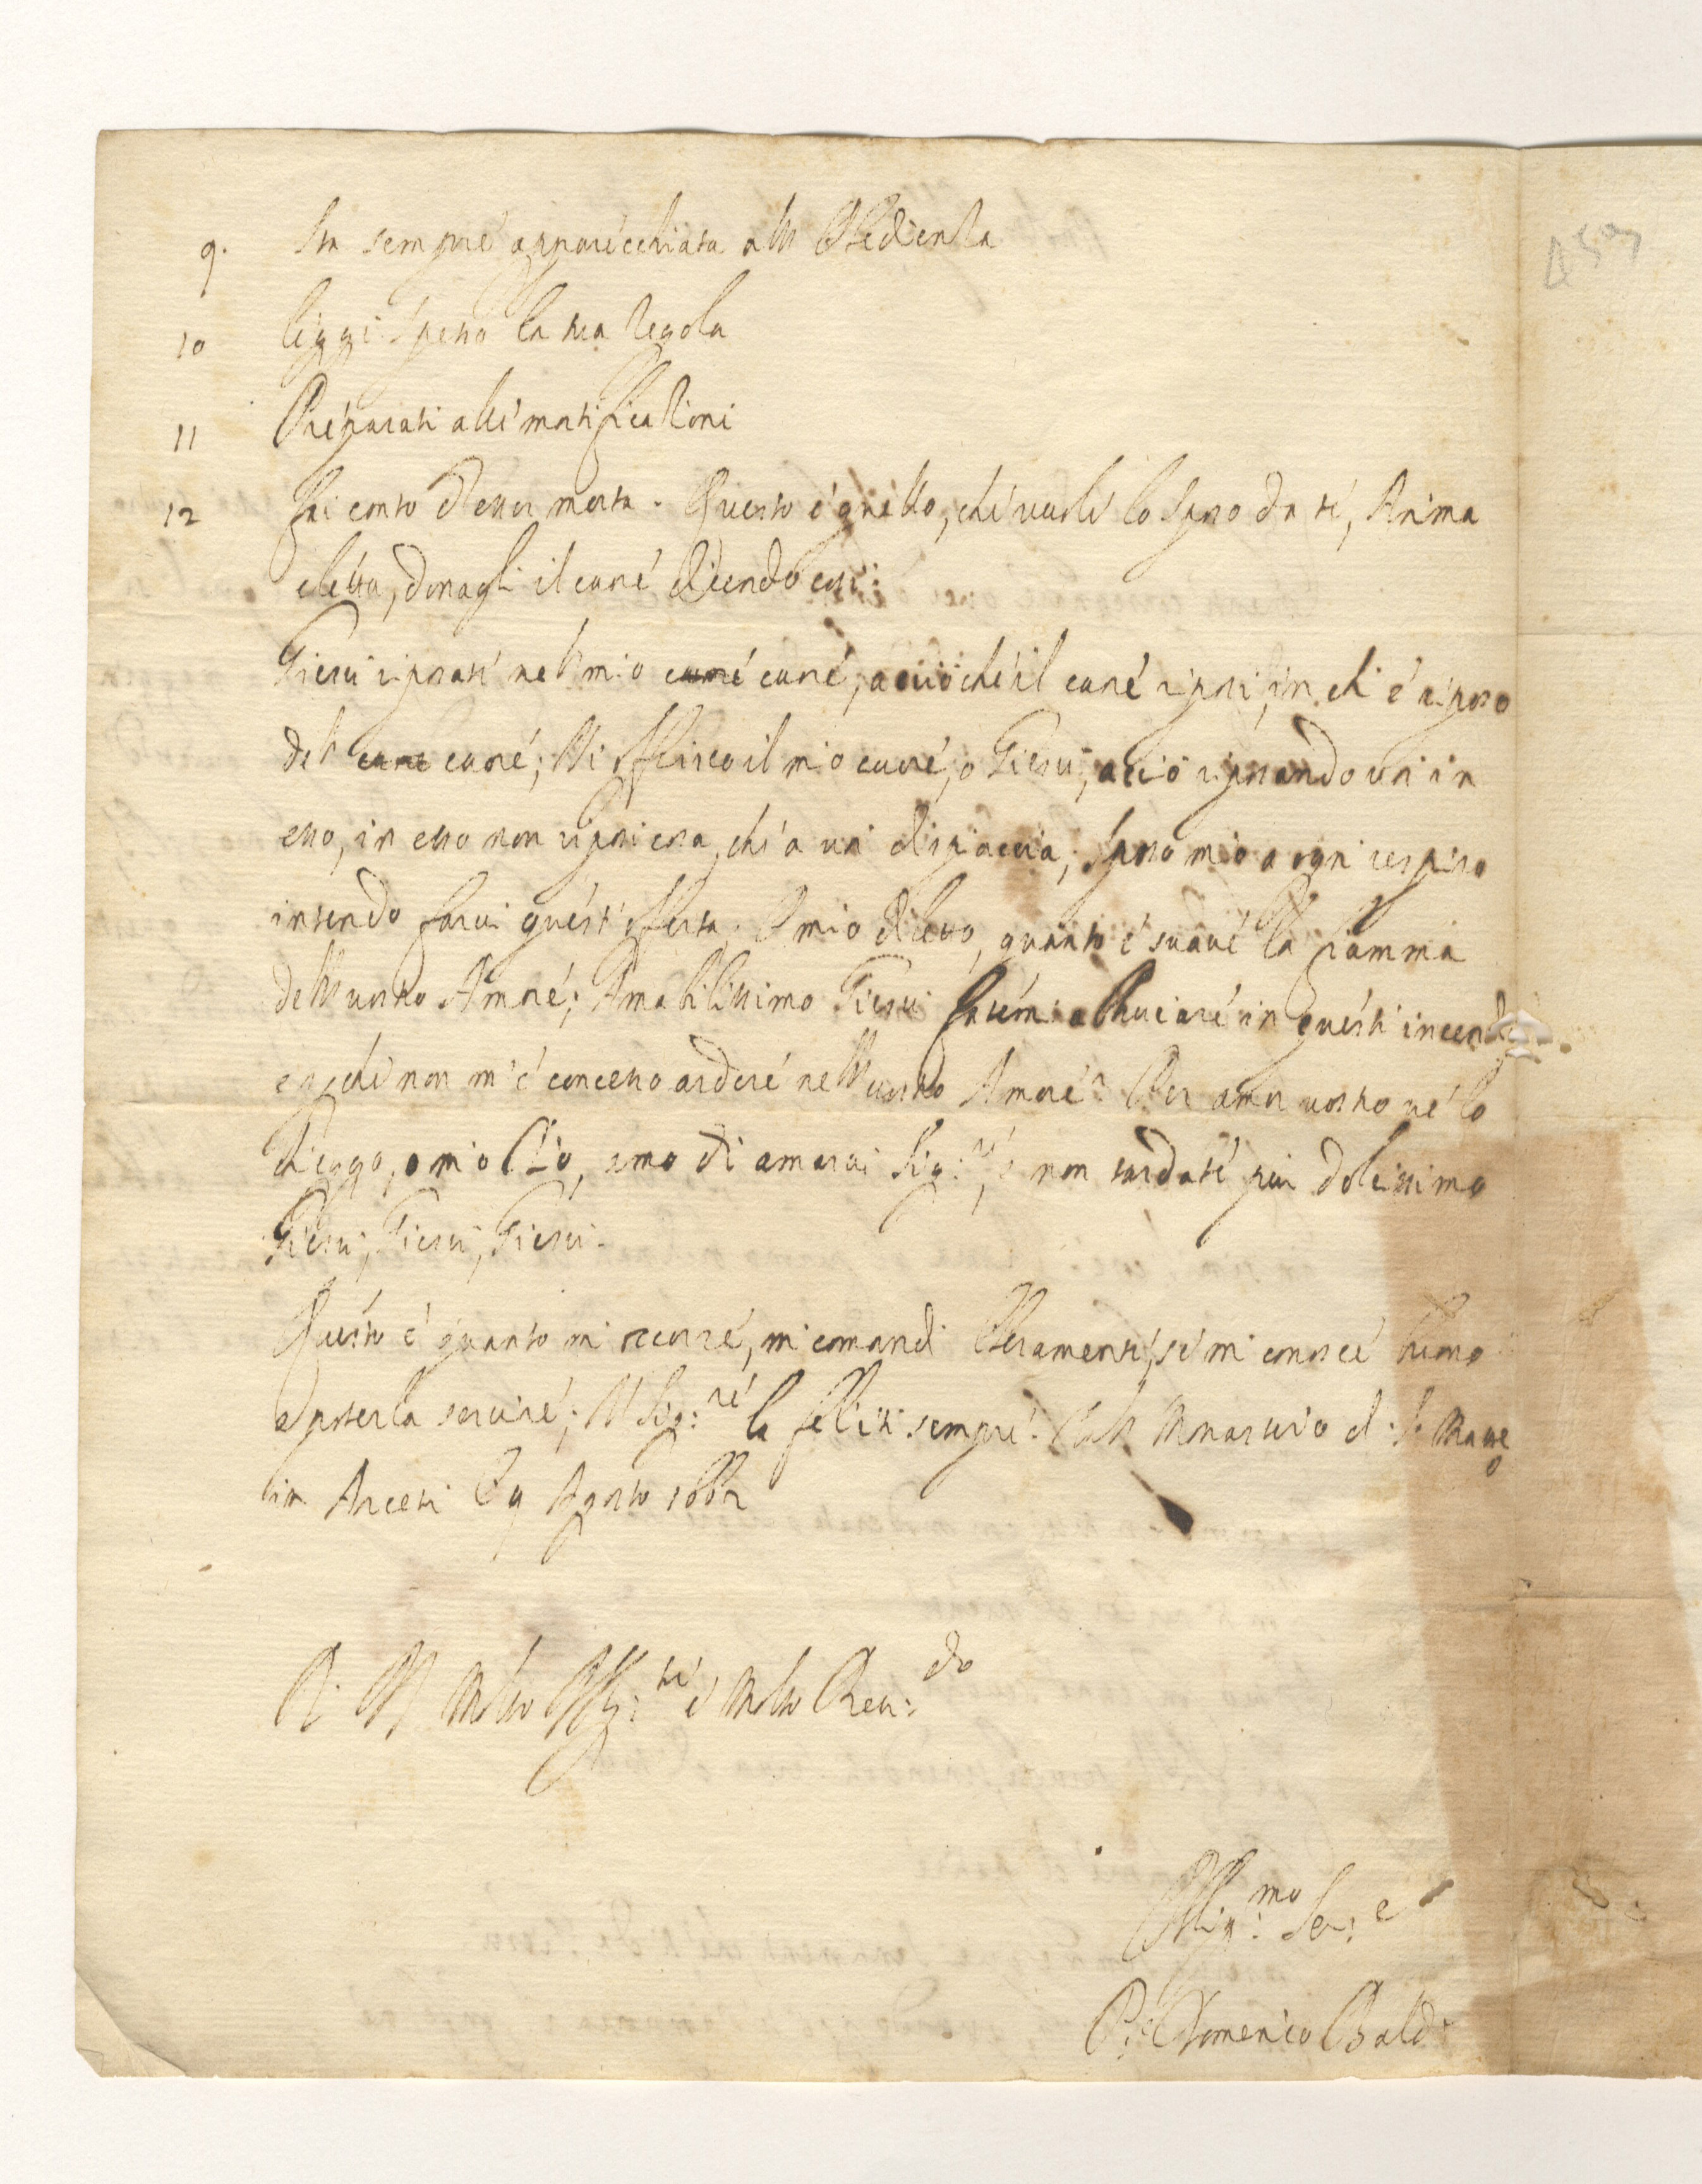 9. Sta sempre apparecchiata all Obedienza
10 leggi spesso la tua Regola
11 Preparati alle mortificationi
12 fai conto d'esser morta. Questo è quello, che vuole lo sposo da te, Anima
eletta, donagli il cuore dicendo così:
Giesù riposate nel mio cuore cuore, acciò che il cuore riposi, in chi è riposo
del cuore cuore; Vi offerisco il mio cuore, o Giesù, acciò riposando voi in
esso, in esso non riposi cosa, che a voi dispiaccia; sposo mio a ogni respiro
intendo farvi quest'offerta. O mio diletto, quanto è suave la fiamma
dell vostro Amore; Amabilissimo Giesù fatemi abbruciare in questi incendi
e perche non m'è concesso ardere nell vostro Amore? Per amor vostro ve lo
chieggo, o mio Dio, amo di amarvi Sig:re, non tardate più dolcissimo
Giesù, Giesù, Giesù.
Questo è quanto mi occorre, mi comandi liberamente, se mi conosce buono
a poterla servire; Il Sig:re la feliciti sempre. Dall Monasterio di S. Matteo
in Arcetri 9 Agosto
R. M. Molto Ill:re e Molto Rev:do
Oblig:mo Ser:e
P: Domenico Baldi